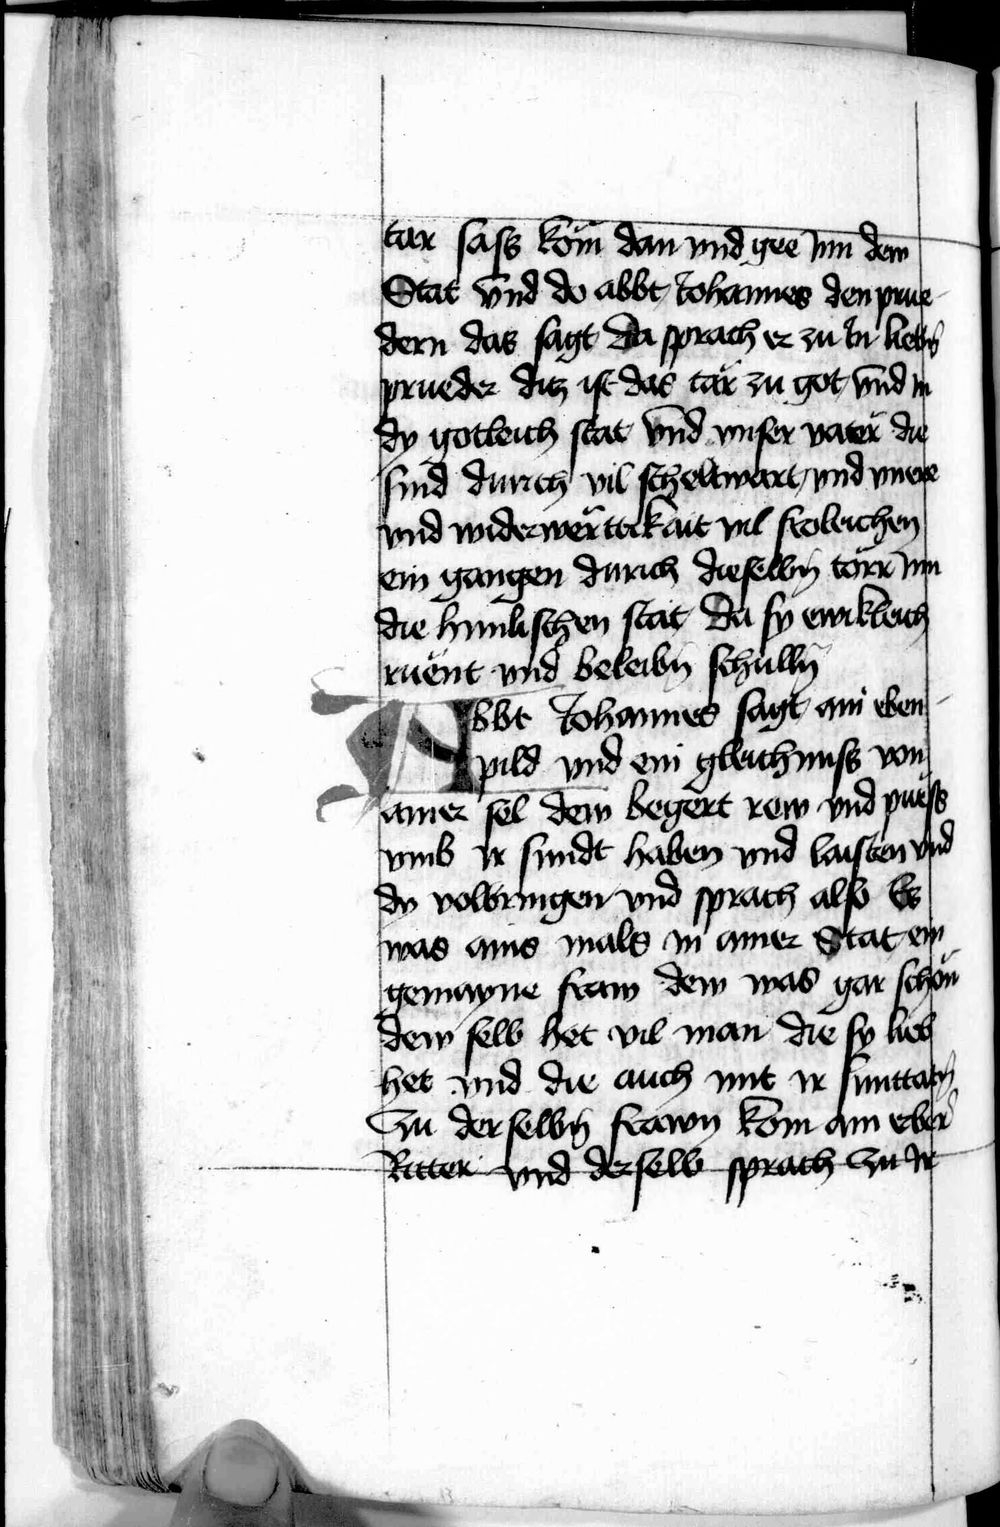 tar sass köm dan vnd gee Inn dem
Stat vnd do abbt Johannes den prue
dern das sagt Da sprach er zu In liebn̄
prueder ditz ist das tär zu got vnd in
dy gotleich stat vnd vnser vater die
sind durich vil scheltwart vnd vnere
vnd widerwërttikait vil froleichen
ein gangen durich dieselbn̄ törr Inn
die himlischen stat Da sy ewikleich
ruent vnd beleibn̄ schulln̄
Abbt Johannes sagt ain eben
pild vnd ein gleichnuss von
ainer sel dew begert rew vnd puess
vmb ir sundt haben vnd laisten vnd
dy volbringen vnd sprach also Es
was ains mals in ainer Stat ein
gemayne fraw dew was gar schön
dew selb het vil man die sy lieb
het vnd die auch mit ir sunttatn̄
Zu derselbn̄ frawn kom ain erber
Ritter vnd derselb sprach zu Ir